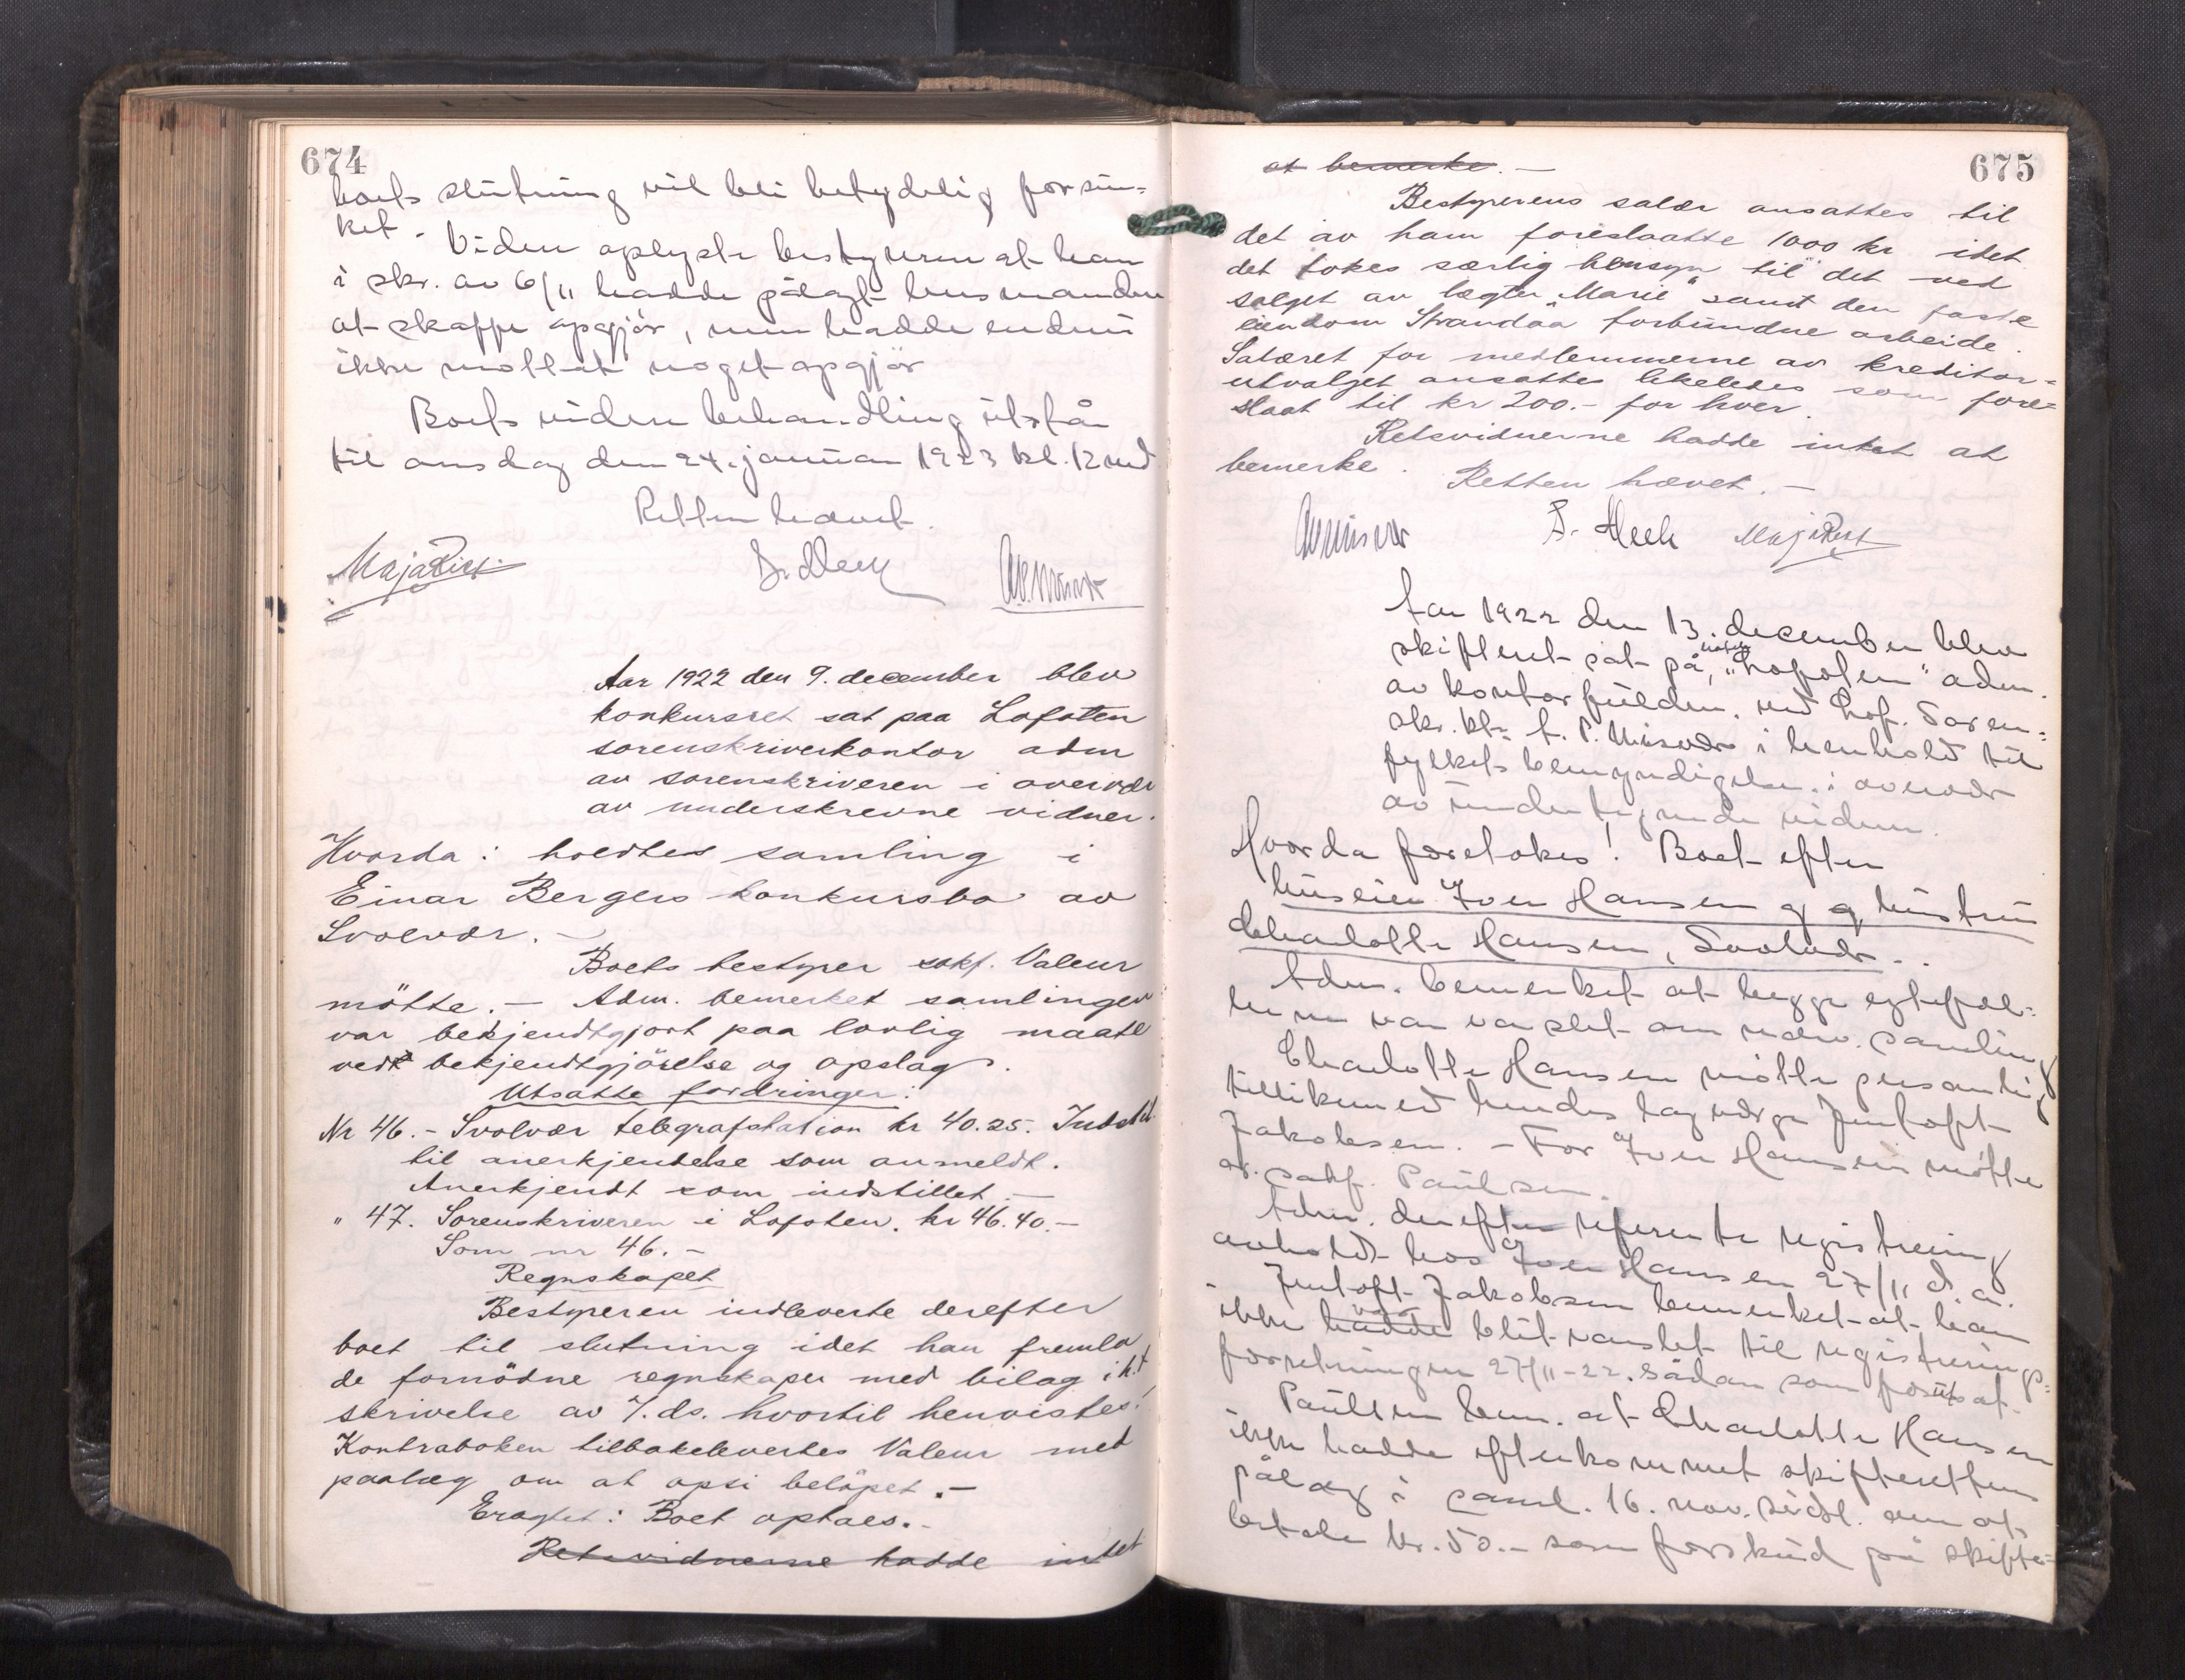 674
boets slutning vil bli betydelig forsin=
ket.
Viden oplyste bestyreren at han
i skr. av 6/11 hadde pålagt husmanden
at skaffe opgjör, men hadde endnu
ikke mottat noget opgjör
Boets videre behandling utstår
til onsdag den 24. januar 1923 kl. 12 md
Retten hævet.
Maja Rist
Aar 1922 den 9. december blev
konkursret sat paa Lofoten
sorenskriverkontor adm
av sorenskriveren i overvær
av underskrevne vidner.
Hvorda: holdtes samling i
Einar Bergers konkursbo av
Svolvær. –
Boets bestyrer sakf. Valeur
mötte. – Adm. bemerket samlingen
var bekjendtgjort paa lovlig maate
ved bekjendtgjörelse og opslag.
Utsatte fordringer:
Nr 46. – Svolvær telegrafstation kr 40.25. Indstil
til anerkjendelse som anmeldt.
Anerkjendt som indstillet. –
" 47. Sorenskriveren i Lofoten. kr 46.40. –
Som nr 46. –
Regnskapet
Bestyreren indleverte derefter
boet til slutning idet han fremla
de fornödne regnskaper med bilag iht
skrivelse av 7. ds. hvortil henvistes.
Kontraboken tilbakelevertes Valeur med
paalæg om at opsi belöpet. –
Eragtet: Boet optaes. –
Retsvidnerne hadde intet
675
at bemerke. –
Bestyrerens salær ansattes til
det av ham foreslaatte 1000 kr idet
det tokes særlig hensyn til det ved
salget av lægter "Marie" samt den faste
eiendom Strandaa forbundne arbeide.
Salæret for medlemmerne av kreditor=
utvalget ansattes likeledes som fore=
slaat til kr 200.– for hver.
Retsvidnerne hadde intet at
bemerke.
Retten hævet. –
Maja Rist
Aar 1922 den 13. december blev
skifteret sat på "Lofoten" adm.
av kontorfuldm. ved Lof. Soren=
skr. kt. A. P. Misvær i henhold til
fylkets bemyndigelse i overvær
av undertegnede vidner.
Hvorda foretokes! Boet efter
huseier Iver Hansen og hustru
Charlotte Hansen, Svolvær.
Adm. bemerket at begge egtefæl=
lerne var varslet om nærv. samling
Charlotte Hansen mötte personlig
tillikemed hendes lagværge Jentoft
Jakobsen. – For Iver Hansen mötte
o.r. sakf. Paulsen.
Adm. derefter refererte registrering
avholdt hos Iver Hansen 27/11 d.a.
Jentoft Jakobsen bemerket at han
ikke hadde blit varslet til registrerings=
forretningen 27/11-22. sådan som forutsat.
Paulsen bem. at Charlotte Hansen
ikke hadde efterkommet skifterettens
pålæg i saml. 16. nov. sidstl. om at
betale kr. 50.– som forskud på skifte=